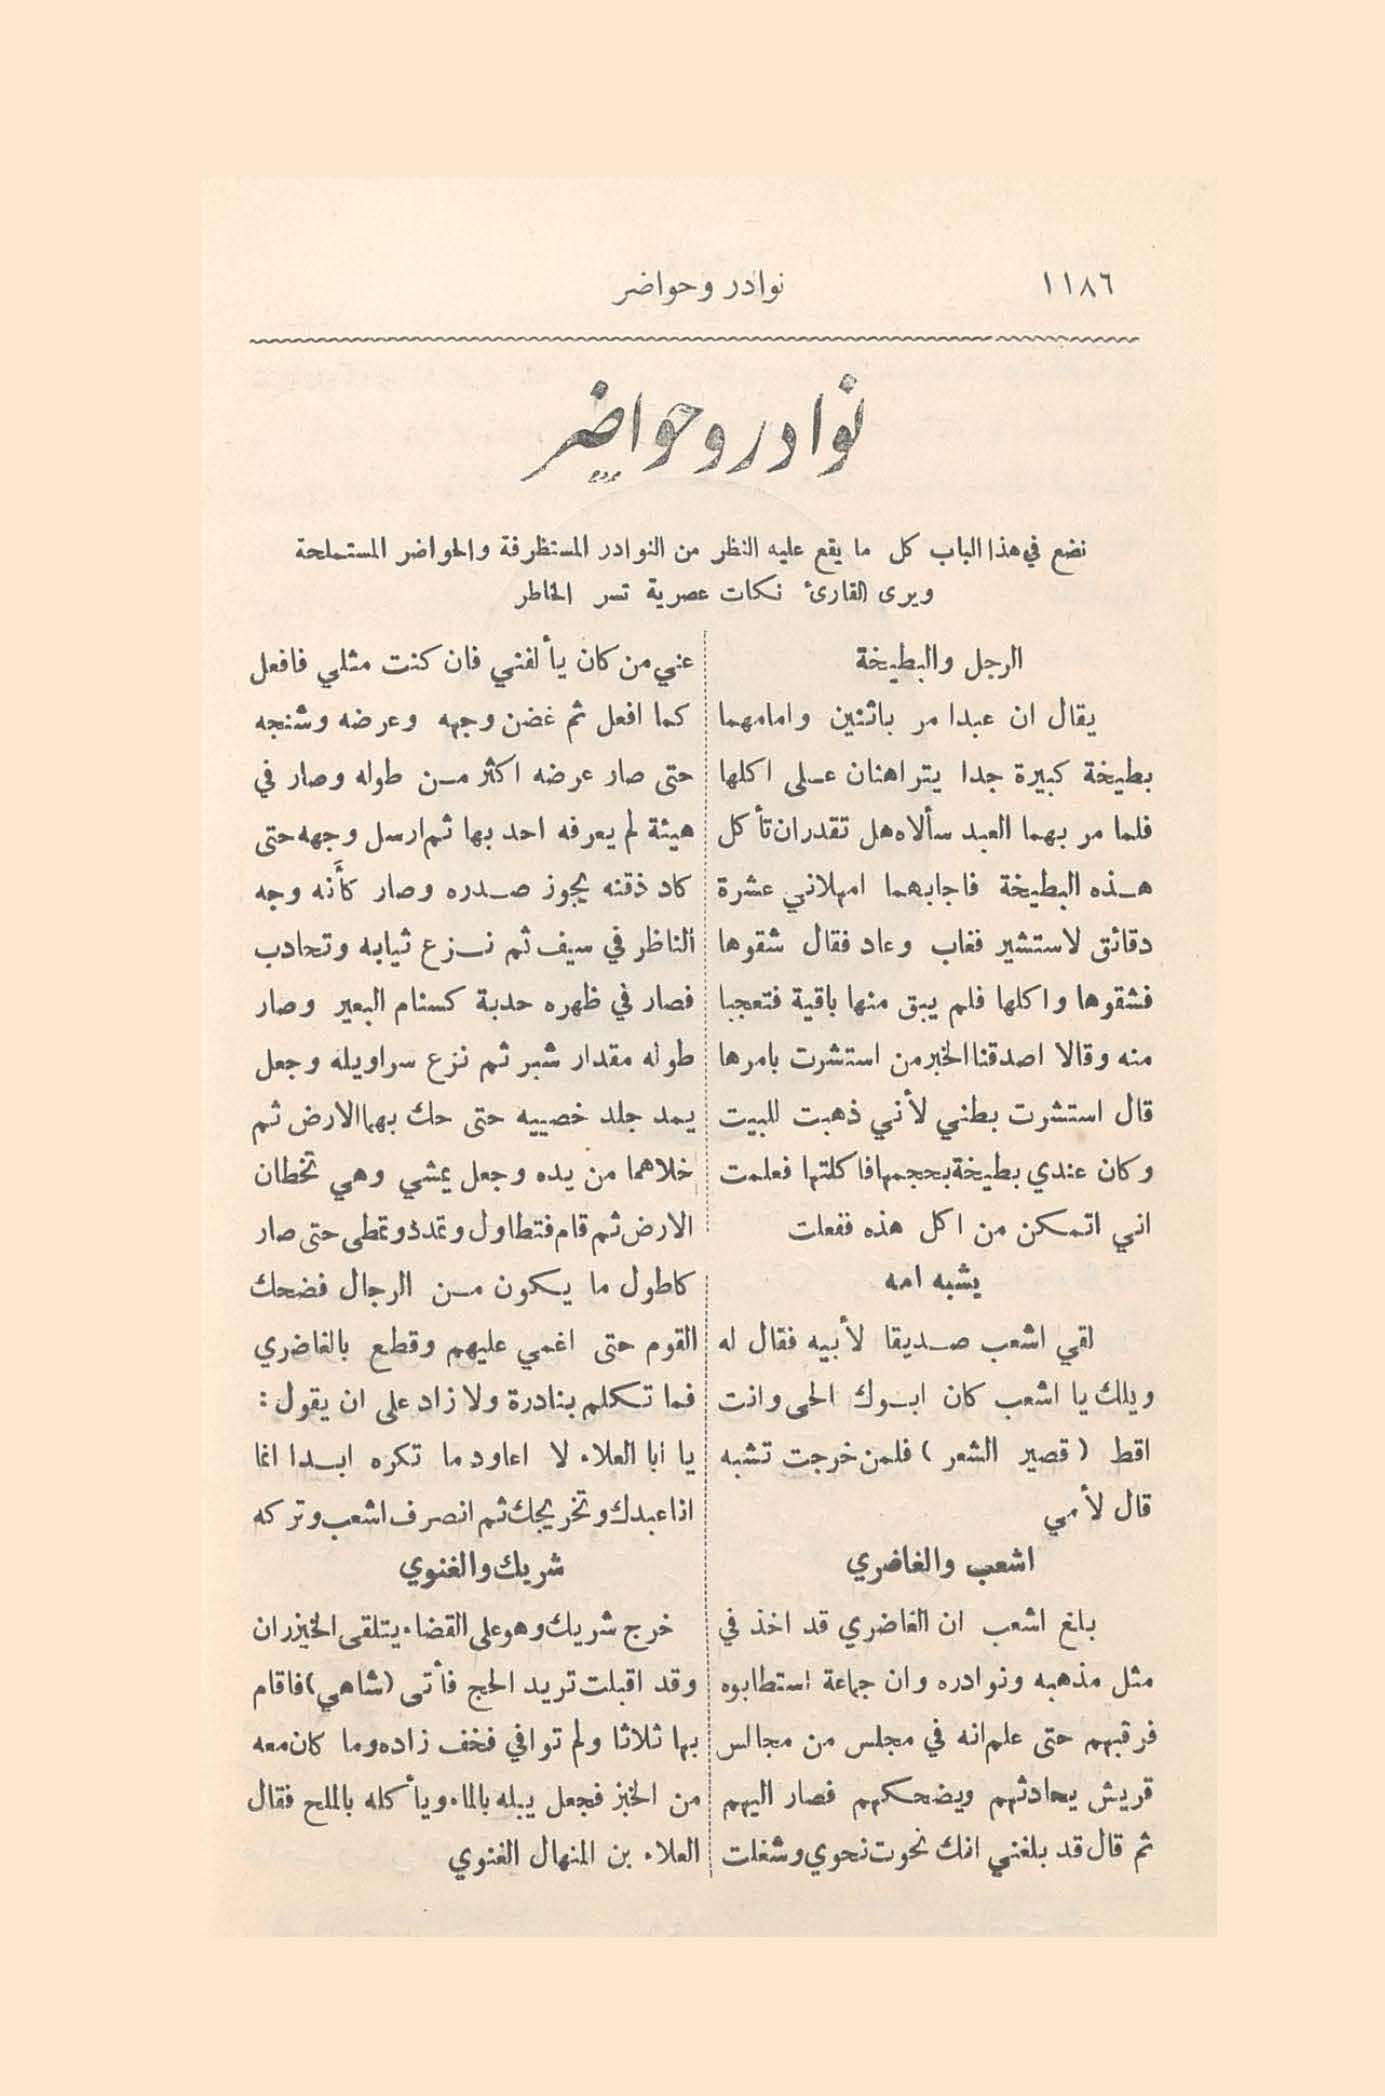 ١١٨٦
نوادر وحواضر
نوادر وحواضر
نضع في هذا الباب كل ما يقع عليه النظر من النوادر المستظرفة والحواضر المستملحة
ويرى القارئ نكات عصرية تسر الخاطر
الرجل والبطيخة
يقال ان عبدا مر باثنين وامامهما
بطيخة كبيرة جدا يتراهنان على اكلها
فلما مر بهما العبد سألاه هل تقدران تأكل
هذه البطيخة فاجابهما امهلاني عشرة
دقائق لاستشير فغاب وعاد فقال شقوها
فشقوها واكلها فلم يبق منها باقية فتعجبا
منه وقالا اصدقنا الخبر من استشرت بامرها
قال استشرت بطني لأني ذهبت للبيت
وكان عندي بطيخة بحجمها فاكلتها فعلمت
اني اتمكن من اكل هذه ففعلت
يشبه امه
لقي اشعب صديقا لأبيه فقال له
ويلك يا اشعب كان ابوك الحى وانت
اقط (قصير الشعر) فلمن خرجت تشبه
قال لأمي
اشعب والغاضري
بلغ اشعب ان الغاضري قد اخذ في
مثل مذهبه ونوادره وان جماعة استطابوه
فرقبهم حتى علم انه في مجلس من مجالس
قريش يحادثهم ويضحكهم فصار اليهم
ثم قال قد بلغني انك نحوت نحوي وشغلت
عني من كان يألفني فان كنت مثلي فافعل
كما افعل ثم غضن وجهه وعرضه وشنجه
حتى صار عرضه اكثر من طوله وصار في
هيئة لم يعرفه احد بها ثم ارسل وجهه حتى
كاد ذقنه يجوز صدره وصار كأنه وجه
الناظر في سيف ثم نزع ثيابه وتحادب
فصار في ظهره حدبة كسنام البعير وصار
طوله مقدار شبر ثم نزع سراويله وجعل
يمد جلد خصييه حتى حك بهما الارض ثم
خلاهما من يده وجعل يمشي وهي تخطان
الارض ثم قام فتطاول وتمدد وتمطى حتى صار
كاطول ما يكون من الرجال فضحك
القوم حتى اغمي عليهم وقطع بالغاضري
فما تكلم بنادرة ولا زاد على ان يقول :
يا ابا العلاء لا اعاود ما تكره ابدا انما
انا عبدك وتخريجك ثم انصرف اشعب وتركه
شريك والغنوي
خرج شريك وهو على القضاء يتلقى الخيزران
وقد اقبلت تريد الحج فأتى (شاهي) فاقام
بها ثلاثا ولم توافي فخف زاده وما كان معه
من الخبز فجعل يبله بالماء ويأكله بالملح فقال
العلاء بن المنهال الغنوي